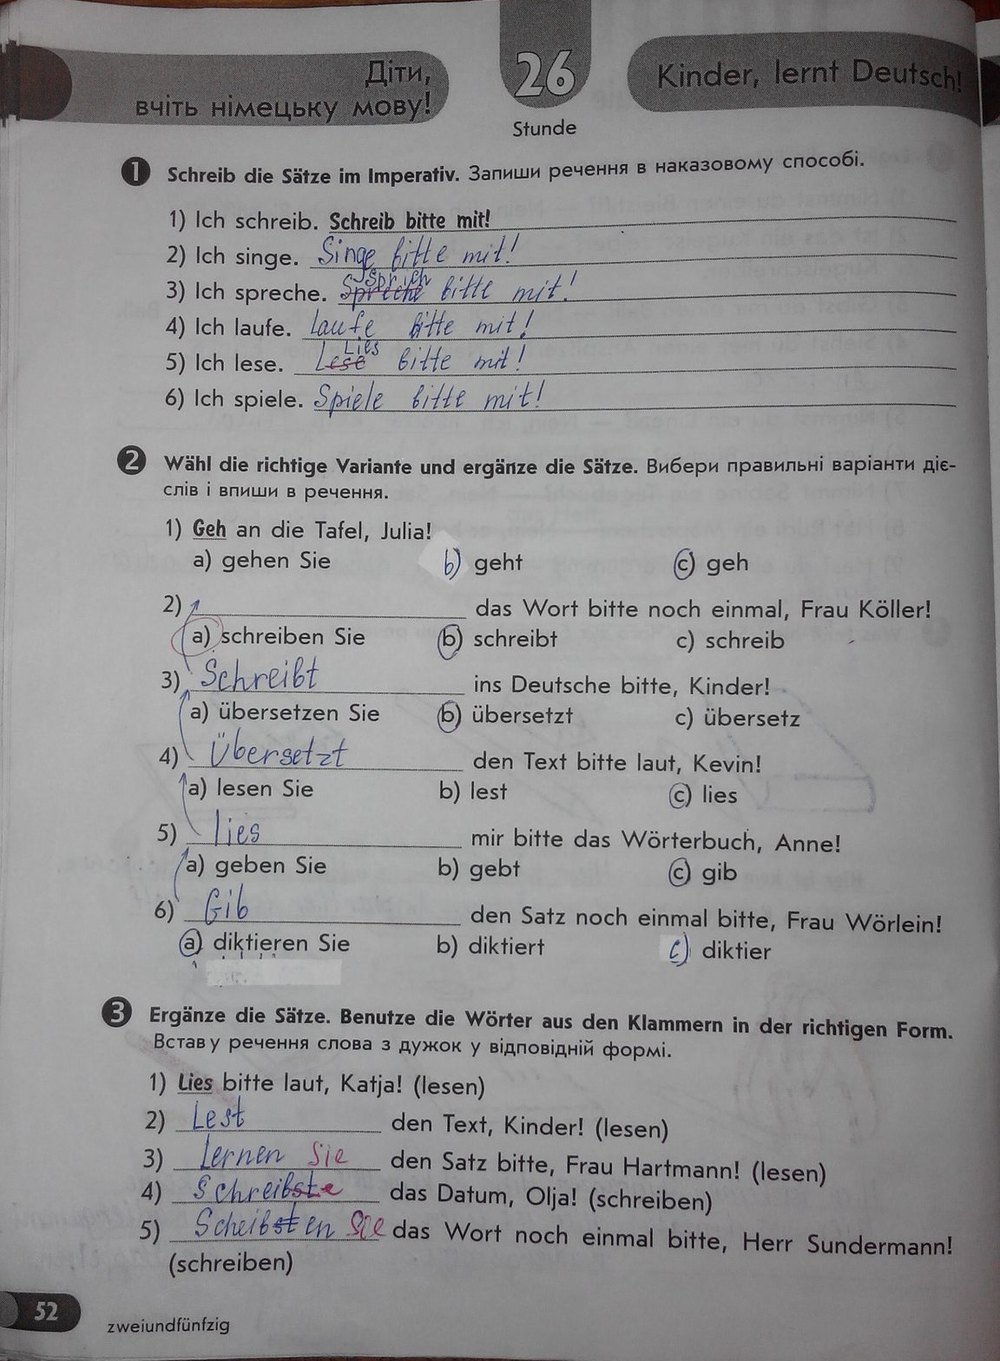 Діти,
вчіть німецьку мову!
26
Stunde
Kinder, lernt Deutsch!
1 Schreib die Sätze im Imperativ. Запиши речення в наказовому способі.
1) Ich schreib. Schreib bitte mit!
2) Ich singe. Singe bitte mit!
Sprich
3) Ich spreche. Spreche bitte mit!
4) Ich laufe. Laufe bitte mit!
Lies
5) Ich lese. Lese bitte mit!
6) Ich spiele. Spiele bitte mit!
2 Wähl die richtige Variante und ergänze die Sätze. Вибери правильні варіанти діє-
слів і впиши в речення.
1) Geh an die Tafel, Julia!
a) gehen Sie b) geht c) geh
2) das Wort bitte noch einmal, Frau Köller!
a) schreiben Sie b) schreibt c) schreib
3) Schreibt ins Deutsche bitte, Kinder!
a) übersetzen Sie b) übersetzt c) übersetz
4) Übersetzt den Text bitte laut, Kevin!
a) lesen Sie b) lest c) lies
5) lies mir bitte das Wörterbuch, Anne!
a) geben Sie b) gebt c) gib
6) Gib den Satz noch einmal bitte, Frau Wörlein!
a) diktieren Sie b) diktiert c) diktier
3 Ergänze die Sätze. Benutze die Wörter aus den Klammern in der richtigen Form.
Встав у речення слова з дужок у відповідній формі.
1) Lies bitte laut, Katja! (lesen)
2) Lest den Text, Kinder! (lesen)
3) Lernen Sie den Satz bitte, Frau Hartmann! (lesen)
4) Schreibste das Datum, Olja! (schreiben)
5) Scheibsten Sie das Wort noch einmal bitte, Herr Sundermann!
(schreiben)
52
zweiundfünfzig